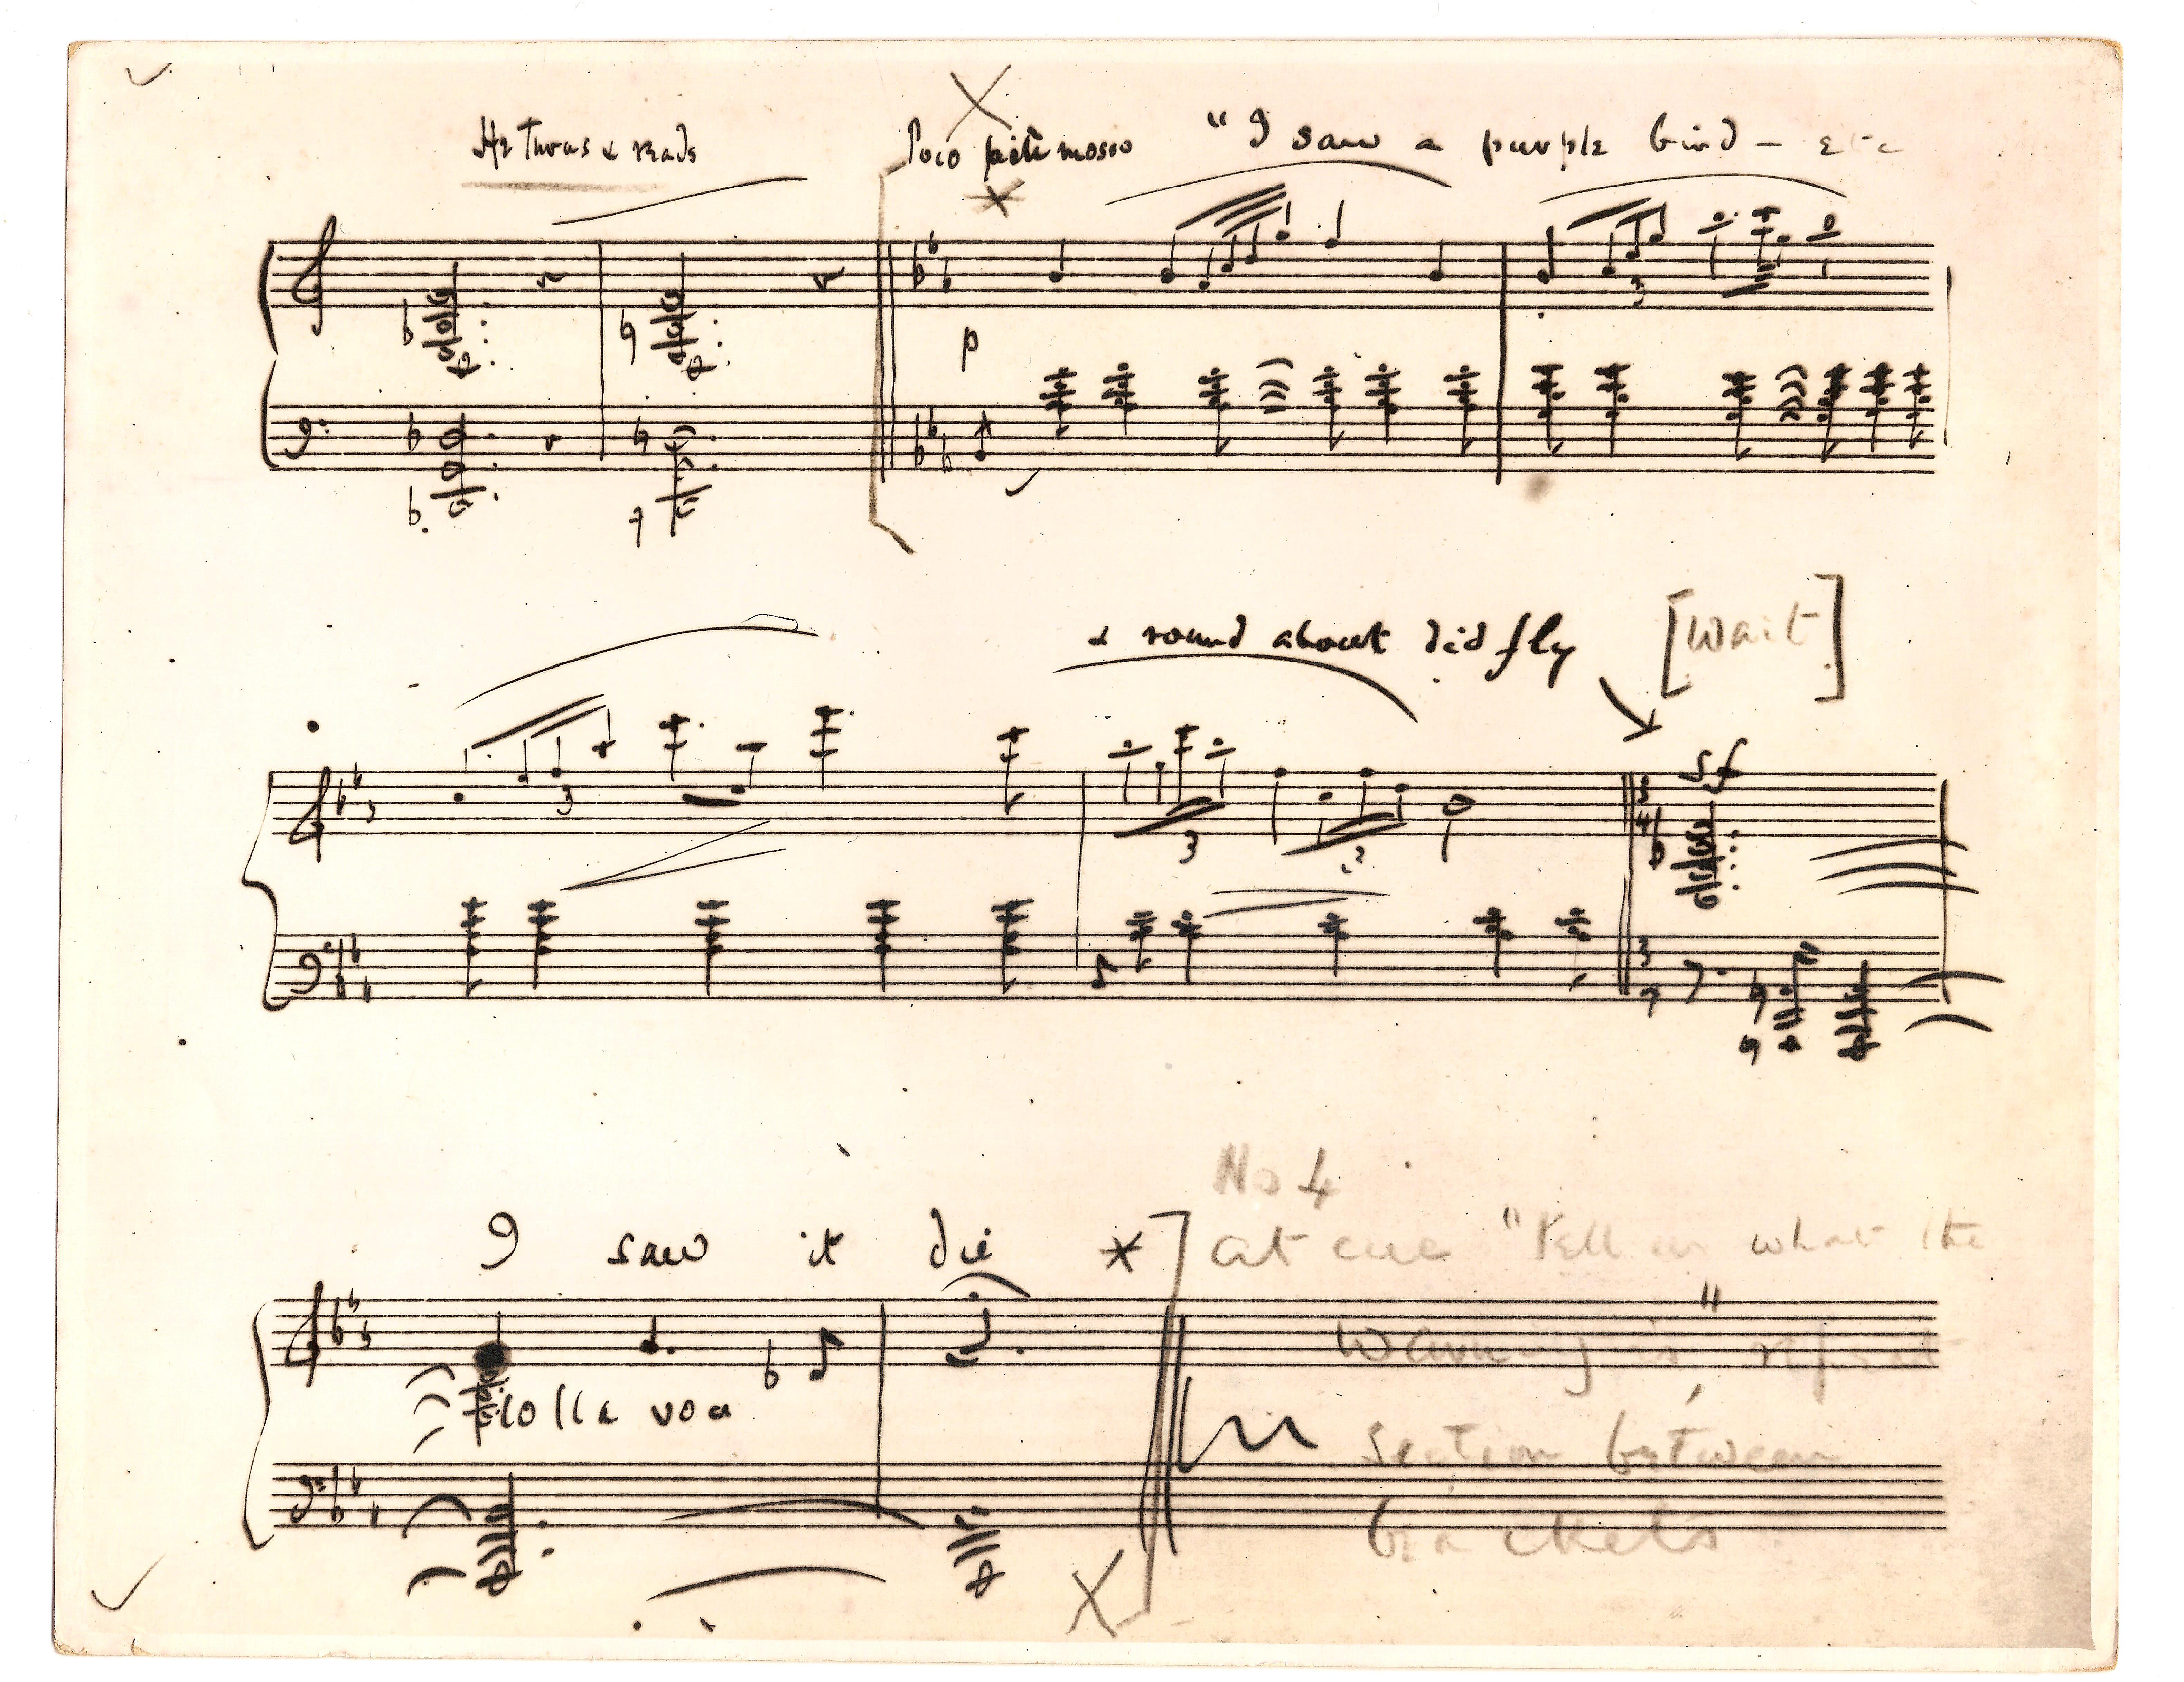 He Turns & reads
Poco più mosso "I saw a purple bird - etc
p
3
3
& round about did fly [wait]
3
3
sf
3
4
3
I saw it die
colla voce
No 4
at cue "Tell us what the
Warning is" repeat
Section between
brackets